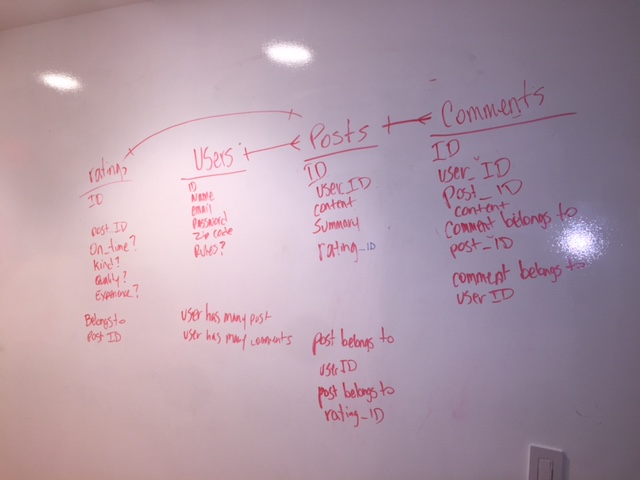 rating?
ID
post ID
On_time?
Kind?
Quality?
Experience?
Belongs to
Post ID
Users
ID
Name
email
Password
Zip code
user has many post
user has many comments
Posts
ID
user_ID
content
Summary
rating_ID
post belongs to
user ID
post belongs to
rating_ID
Comments
ID
user_ID
Post_ID
content
comment belongs to
post_ID
comment belongs to
user ID